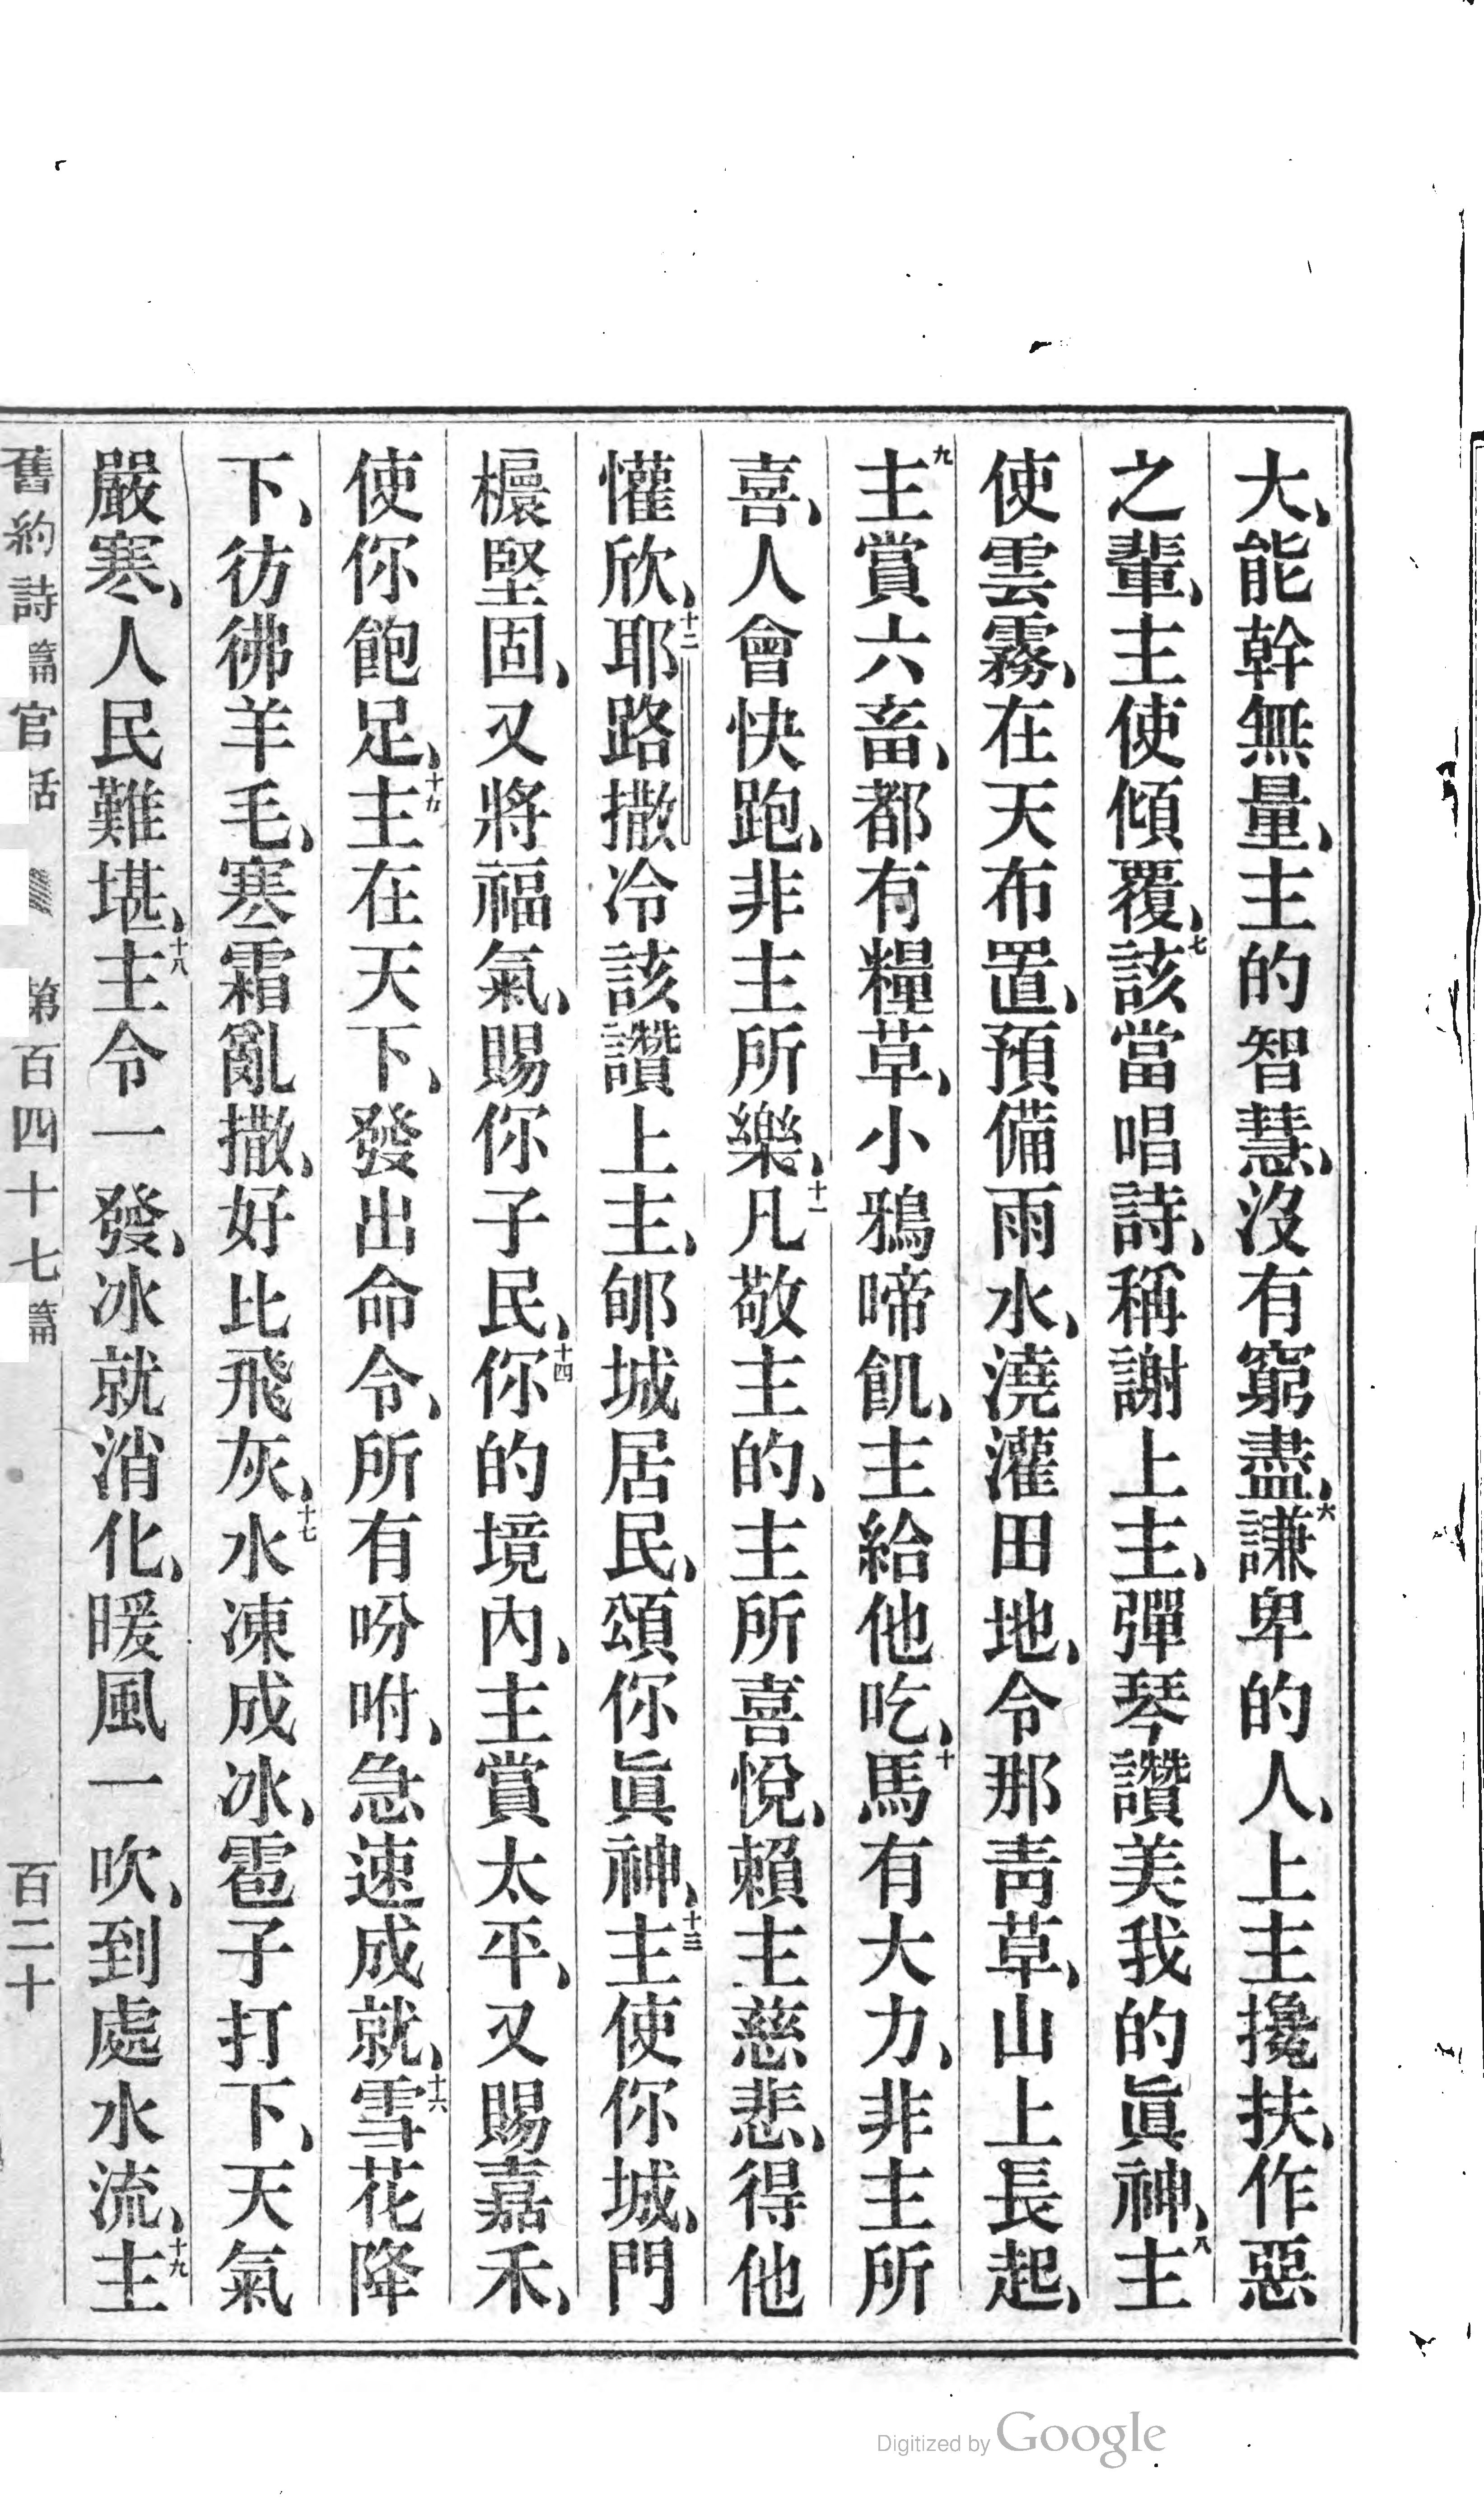 大、能幹無量、主的智慧、沒有窮盡、六謙卑的人、上主攙扶、作惡
之輩、主使傾覆、七該當唱詩、稱謝上主、彈琴讚美我的眞神、八主
使雲霧、在天布置、預備雨水、澆灌田地、令那靑草、山上長起、
九主賞六畜、都有糧草、小鴉啼飢、主給他吃、十馬有大力、非主所
喜、人會快跑、非主所樂、十一凡敬主的、主所喜悅、賴主慈悲、得他
懽欣、十二耶路撒冷該讚上主、郇城居民、頌你眞神、十三主使你城、門
櫎堅固、又將福氣、賜你子民、十四你的境內、主賞太平、又賜嘉禾、
使你飽足、十五主在天下、發出命令、所有吩咐、急速成就、十六雪花降
下、彷彿羊毛、寒霜亂撒、好比飛灰、十七水凍成冰、雹子打下、天氣
嚴寒、人民難堪、十八主令一發、冰就消化、暖風一吹、到處水流、十九主
舊約詩篇官話 第百四十七篇 百二十
Digitized by Google